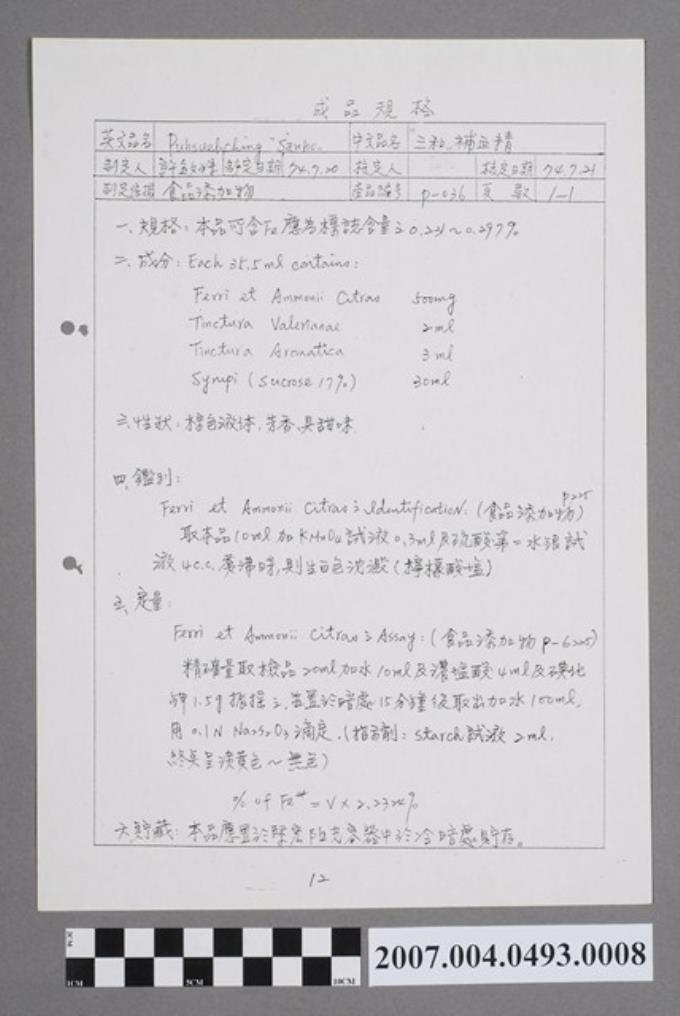 成品規格
英文品名 Puhsuehching "Sanho" 中文品名 "三和"補血精
制定人 制定日期 74.7.20 核定人 核定日期 74.7.21
制定依據 食品添加物 產品編號 p-036 頁數 1-1
一、規格：本品所含Fe應為標誌含量之0.231～0.297%
二、成分：Each 35.5ml contains:
Ferri et Ammonii Citras 500mg
Tinctura Valerianae 2ml
Tinctura Aromatica 3ml
Syrupi (Sucrose 17%) 30ml
三、性狀：棕色液体,芳香,具甜味
四、鑑別：
Ferri et Ammonii Citras之Identification. (食品添加物) p225
取本品10ml加KMnO4試液0.3ml及硫酸第二水銀試
液4c.c.煮沸時,則生白色沈澱(檸檬酸塩)
五、定量：
Ferri et Ammonii Citras之Assay:(食品添加物p-6225)
精確量取檢品20ml加水10ml及濃塩酸4ml及碘化
鉀1.5g振搖之,告置於暗處15分鐘後取出加水100ml,
用0.1N Na2S2O3滴定.(指示劑：starch試液2ml,
終點呈淡黃色～無色)
% of Fe = V × 2.2324%
六、貯藏：本品應置於緊密阻光容器中於冷暗處貯存。
12
1CM
1CM
5CM
10CM
2007.004.0493.0008